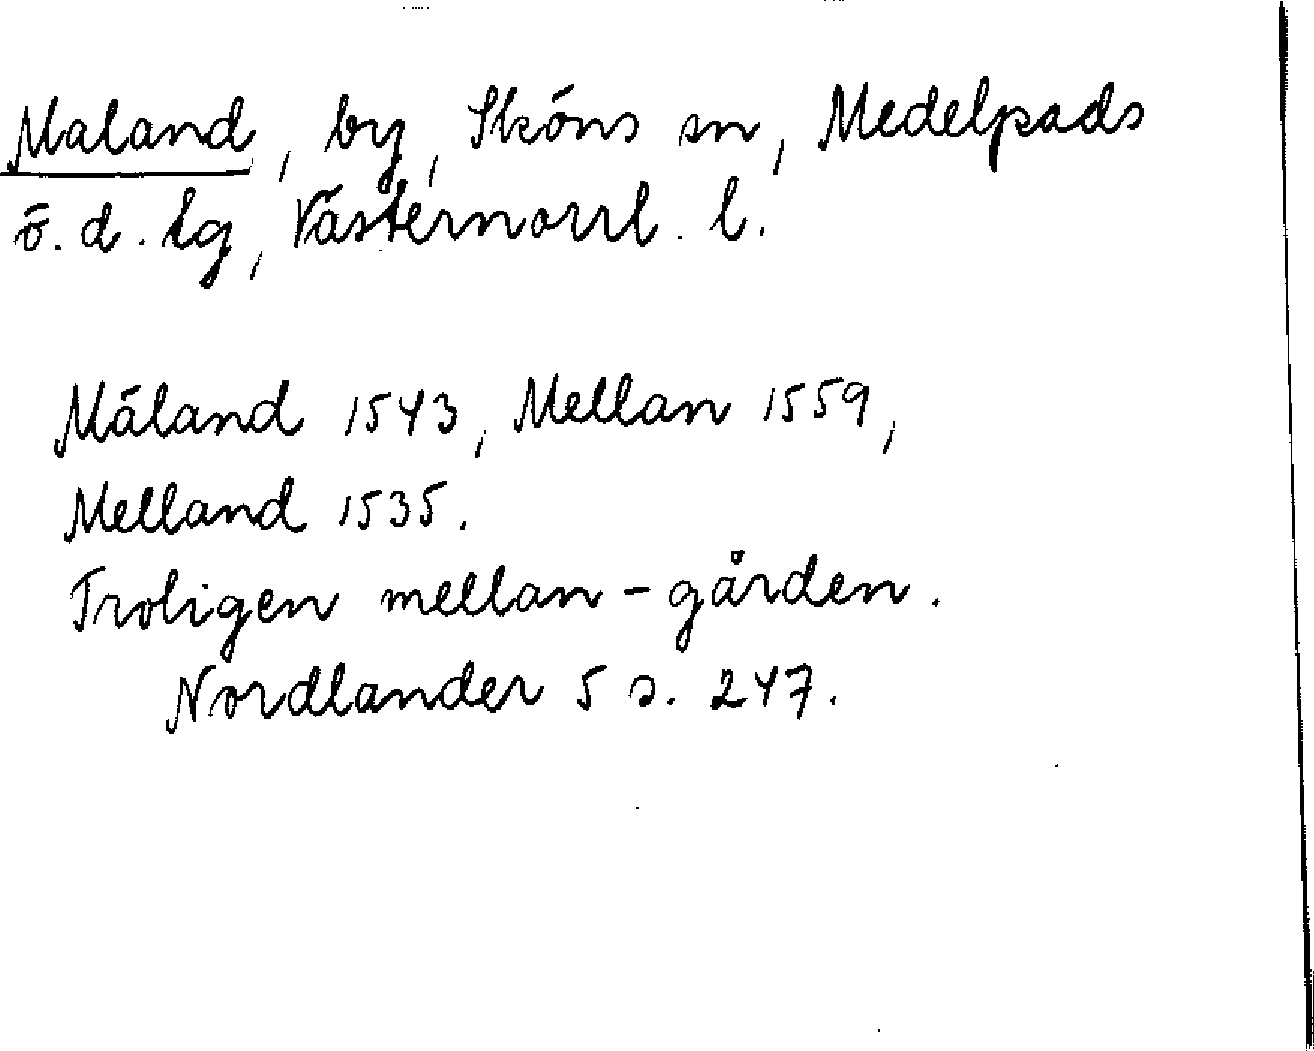 Maland, by, Sköns sn, Medelpads
ö.d.tg, Västernorrl. l.
Måland 1543, Mellan 1559,
Melland 1535.
Troligen mellan-gården.
Nordlander 5 s. 247.